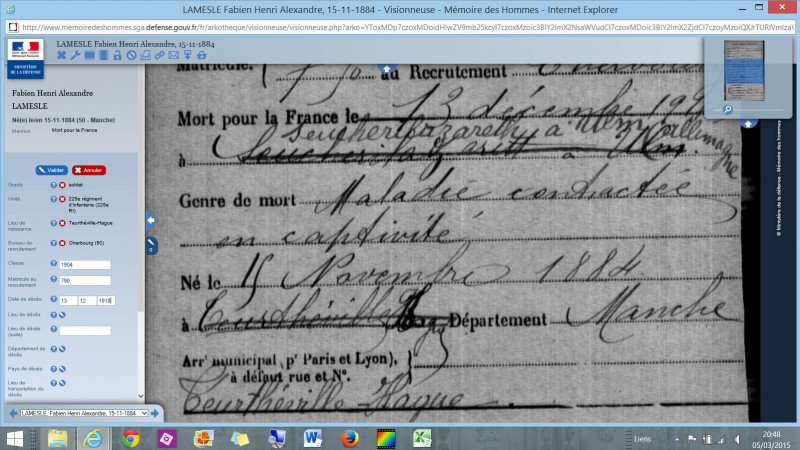 LAMESLE Fabien Henri Alexandre, 15-11-1884 - Visionneuse - Mémoire des Hommes - Internet Explorer
LAMESLE Fabien Henri Alexandre, 15-11-1884
MINISTÈRE
DE LA DÉFENSE
Fabien Henri Alexandre
LAMESLE
Né(e) le/en 15-11-1884 (50 - Manche)
Mention Mort pour la France
Valider Annuler
Grade soldat
Unité 225e régiment
d'infanterie (225e
RI)
Lieu de
naissance Teurthéville-Hague
Bureau de
recrutement Cherbourg (50)
Classe 1904
Matricule au
recrutement 790
Date de décès 13 12 1918
Lieu de décès
Lieu de décès
(suite)
Département de
décès
Pays de décès
Lieu de
transcription du
décès
LAMESLE, Fabien Henri Alexandre, 15-11-1884
Matricule. au Recrutement
Mort pour la France le 13 décembre
à Ulm Allemagne
à Ulm
Genre de mort Maladie contractée
en captivité
Né le 15 Novembre 1884
à Teurthéville Hague Département Manche
Arrt municipal (pr Paris et Lyon),
à défaut rue et N°.
Teurthéville-Hague
© Ministère de la défense - Mémoire des hommes
Liens
20:48
05/03/2015